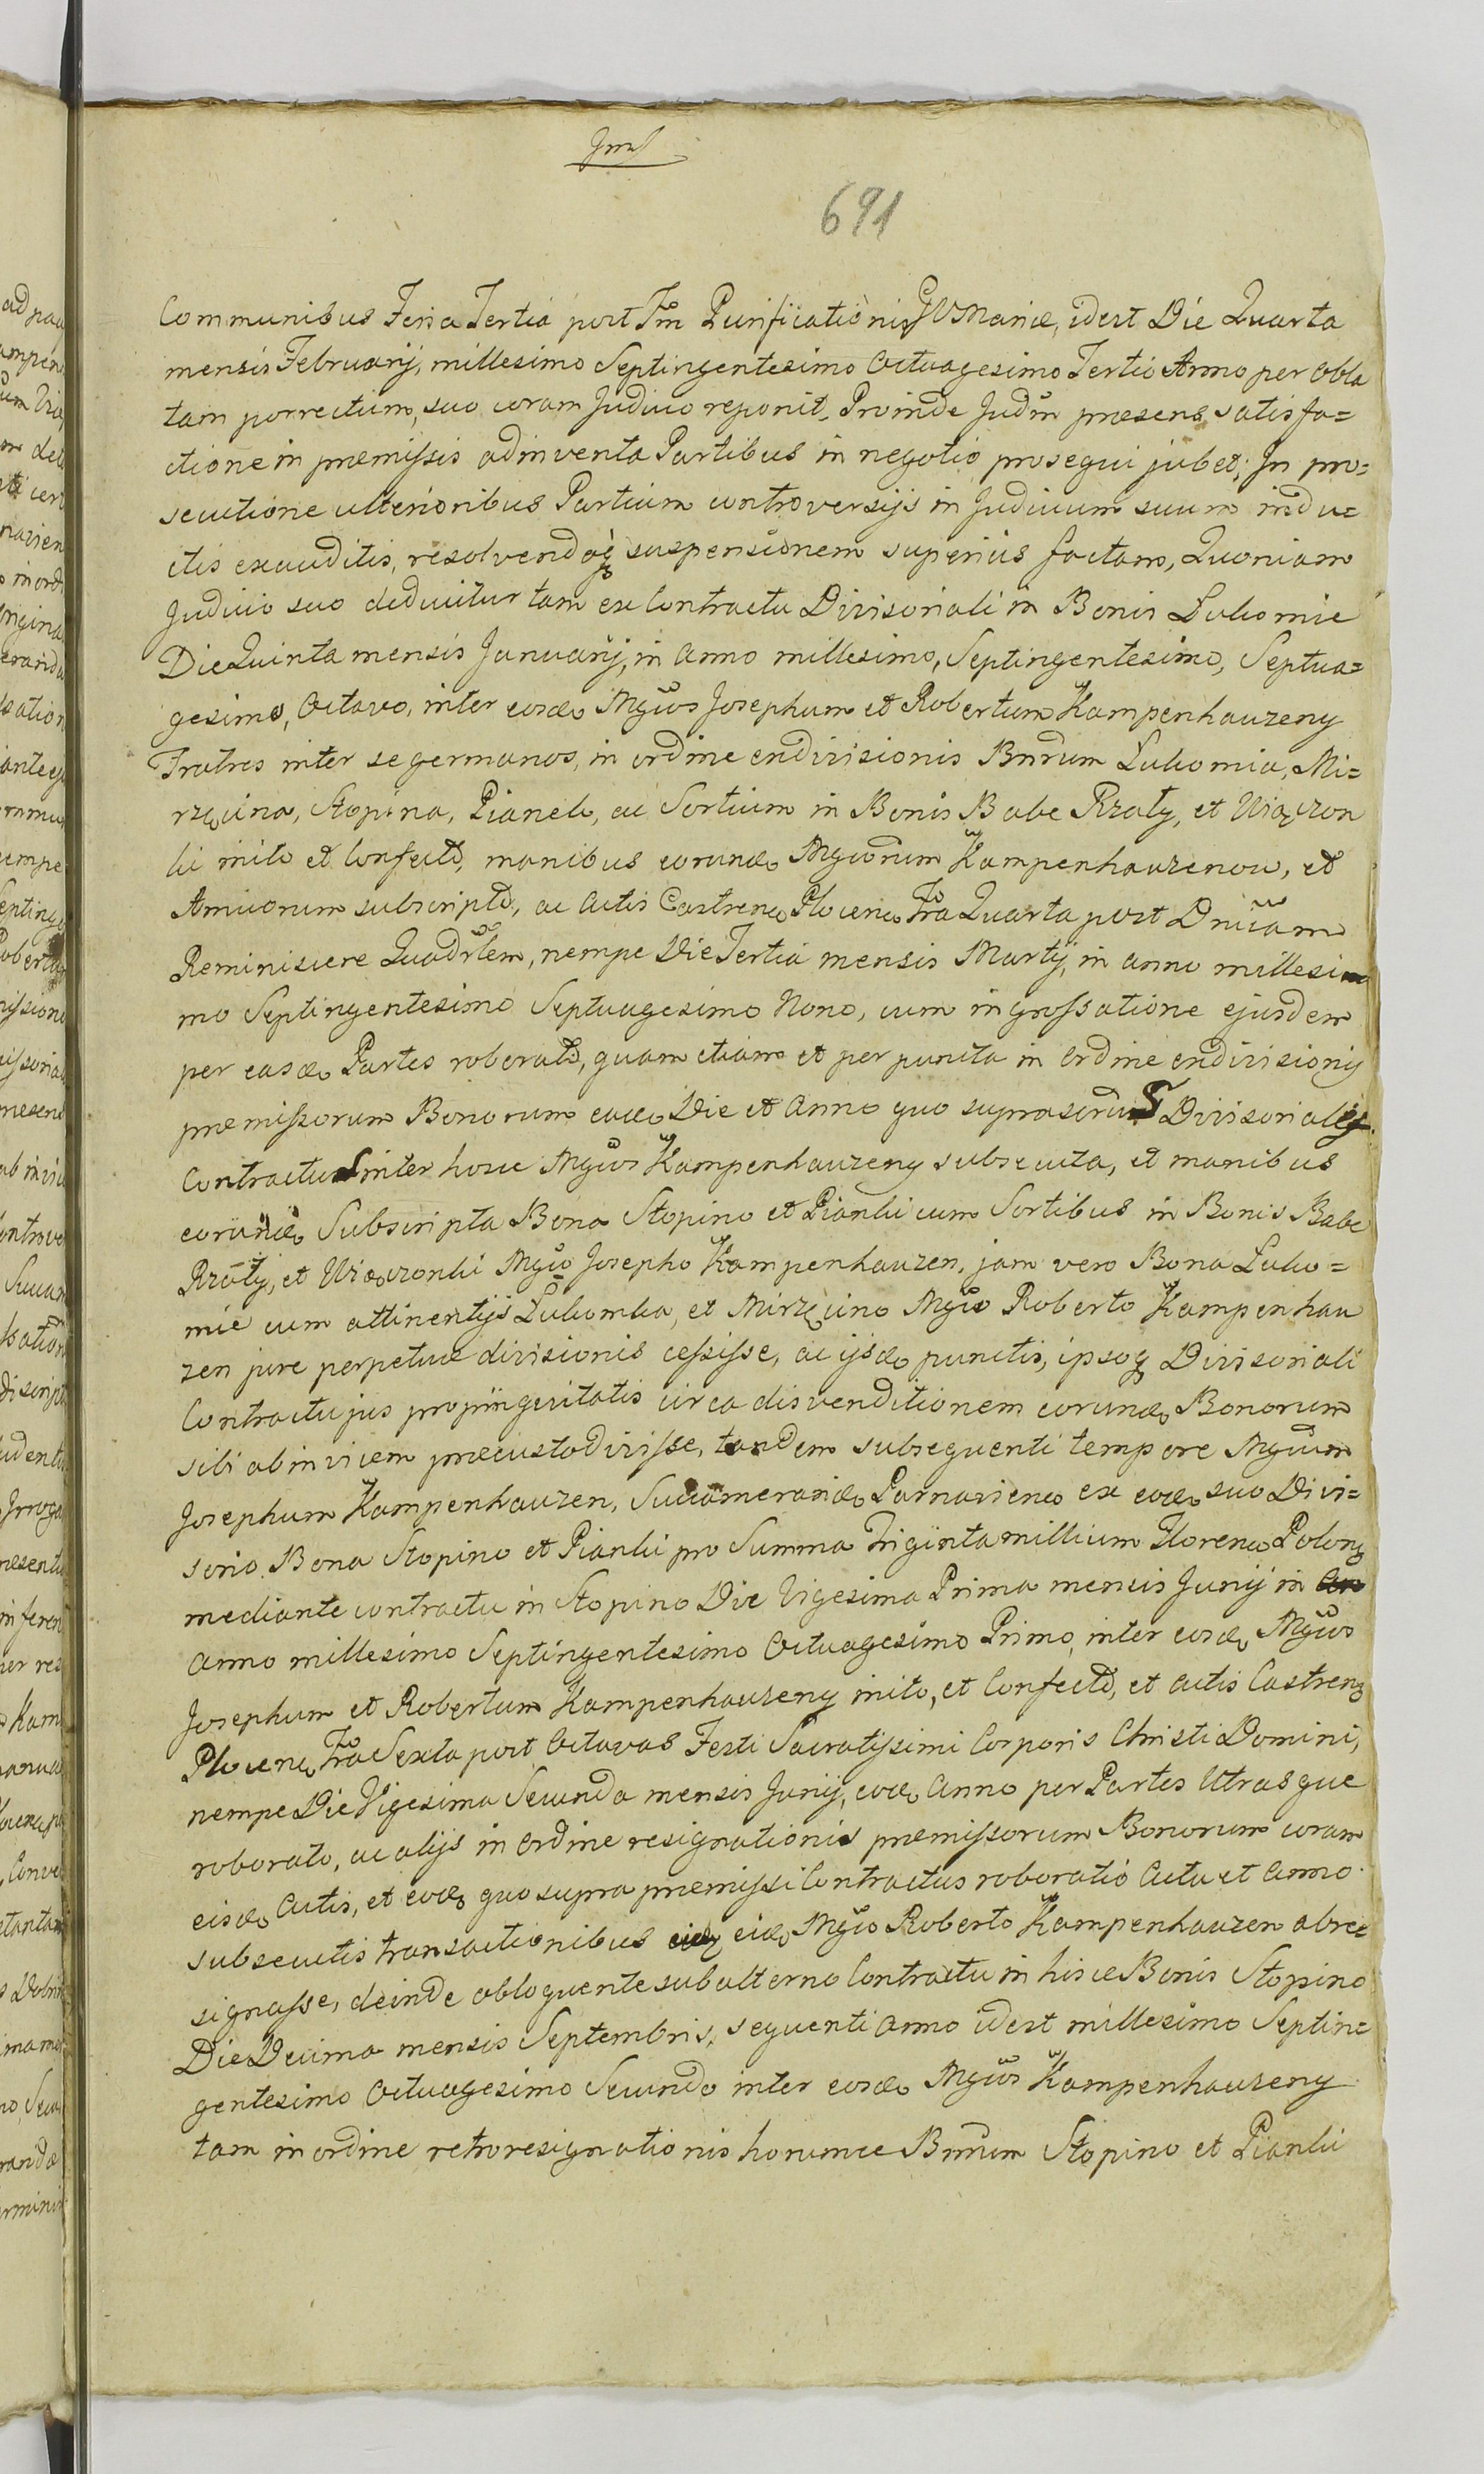 691
Communibus Feria Tertia post Ftm Purificationis B V Mariæ, idest Die Quarta
mensis Februarij, millesimo Septingentesimo Octuagesimo Tertio Anno per Obla
tam porrectum, suo coram Judicio reponit, Proinde Judm præsens satisfa=
ctione in præmissis adinventa Partibus in negotio prosequi jubet; In pro=
secutione ulterioribus Partium controversijs in Judicium suum indu=
ctis exauditis, resolvendoq suspensionem superius factam, Quoniam
Judicio suo deducitur tam ex Contractu Divisoriali in Bonis Luhomie
Die Quinta mensis Januarij, in Anno millesimo, Septingentesimo, Septua=
gesimo, Octavo, inter eosd Mgcos Josephum et Robertum Kampenhauzeny
Fratres inter se germanos, in ordine endivisionis Bnrum Luhomia, Mi=
rzęcina, Stopina, Pianek, ac Sortium in Bonis Babe Rzaty, et Wiączon
ki inito et Confecto, manibus eorund Mgcorum Kampenhauzenow, et
Amicorum subscripto, ac Actis Castren Plocen Fra Quarta post Dnicam
Reminiscere Quadrlem, nempe Die Tertia mensis Martij, in anno millesi
mo Septingentesimo Septuagesimo Nono, cum ingrossatione ejusdem
per easd Partes roborato, quam etiam et per puncta in Ordine endivisionis
præmissorum Bonorum eod Die et Anno quo supra Divisorialis
Contractus inter hosce Mgcos Kampenhauzeny subsecuta, et manibus
eorund Subscripta Bona Stopino et Pianki cum Sortibus in Bonis Babe
Rzaty, et Wiączonki Mgco Josepho Kampenhauzen, jam vero Bona Luho=
mie cum attinentijs Luhomka, et Mirzęcino Mgco Roberto Kampenhau
zen jure perpetuæ divisionis cessisse, ac ijsd punctis, ipsoq Divisoriali
Contractu jus propinquitatis circa disvenditionem eorund Bonorum
sibi abinvicem præcustodivisse, tandem subsequenti tempore Mgcum
Josephum Kampenhauzen, Succamerarid Parnavien ex eod suo Divi=
sorio Bona Stopino et Pianki pro Summa Triginta millium Floren Polon
mediante contractu in Stopino Die Vigesima Prima mensis Junij in
Anno millesimo Septingentesimo Octuagesimo Primo, inter eosd Mgcos
Josephum et Robertum Kampenhauzeny inito, et Confecto, et Actis Castren
Plocen Fra Sexta post Octavas Festi Sacratissimi Corporis Christi Domini,
nempe Die Vigesima Secunda mensis Junij, eod Anno per Partes Utrasque
roborato, ac alijs in Ordine resignationis præmissorum Bonorum coram
eisd Actis, et eod quo supra præmissi Contractus roboratio Actu et Anno
subsecutis transactionibus eid Mgco Roberto Kampenhauzen abre=
signasse, deinde obloquente subalterno Contractu in hisce Bonis Stopino
Die Decima mensis Septembris, sequenti Anno idest millesimo Septin=
gentesimo Octuagesimo Secundo inter eosd Mgcos Kampenhauzeny
tam in ordine retroresignationis horumce Bnrum Stopino et Pianki